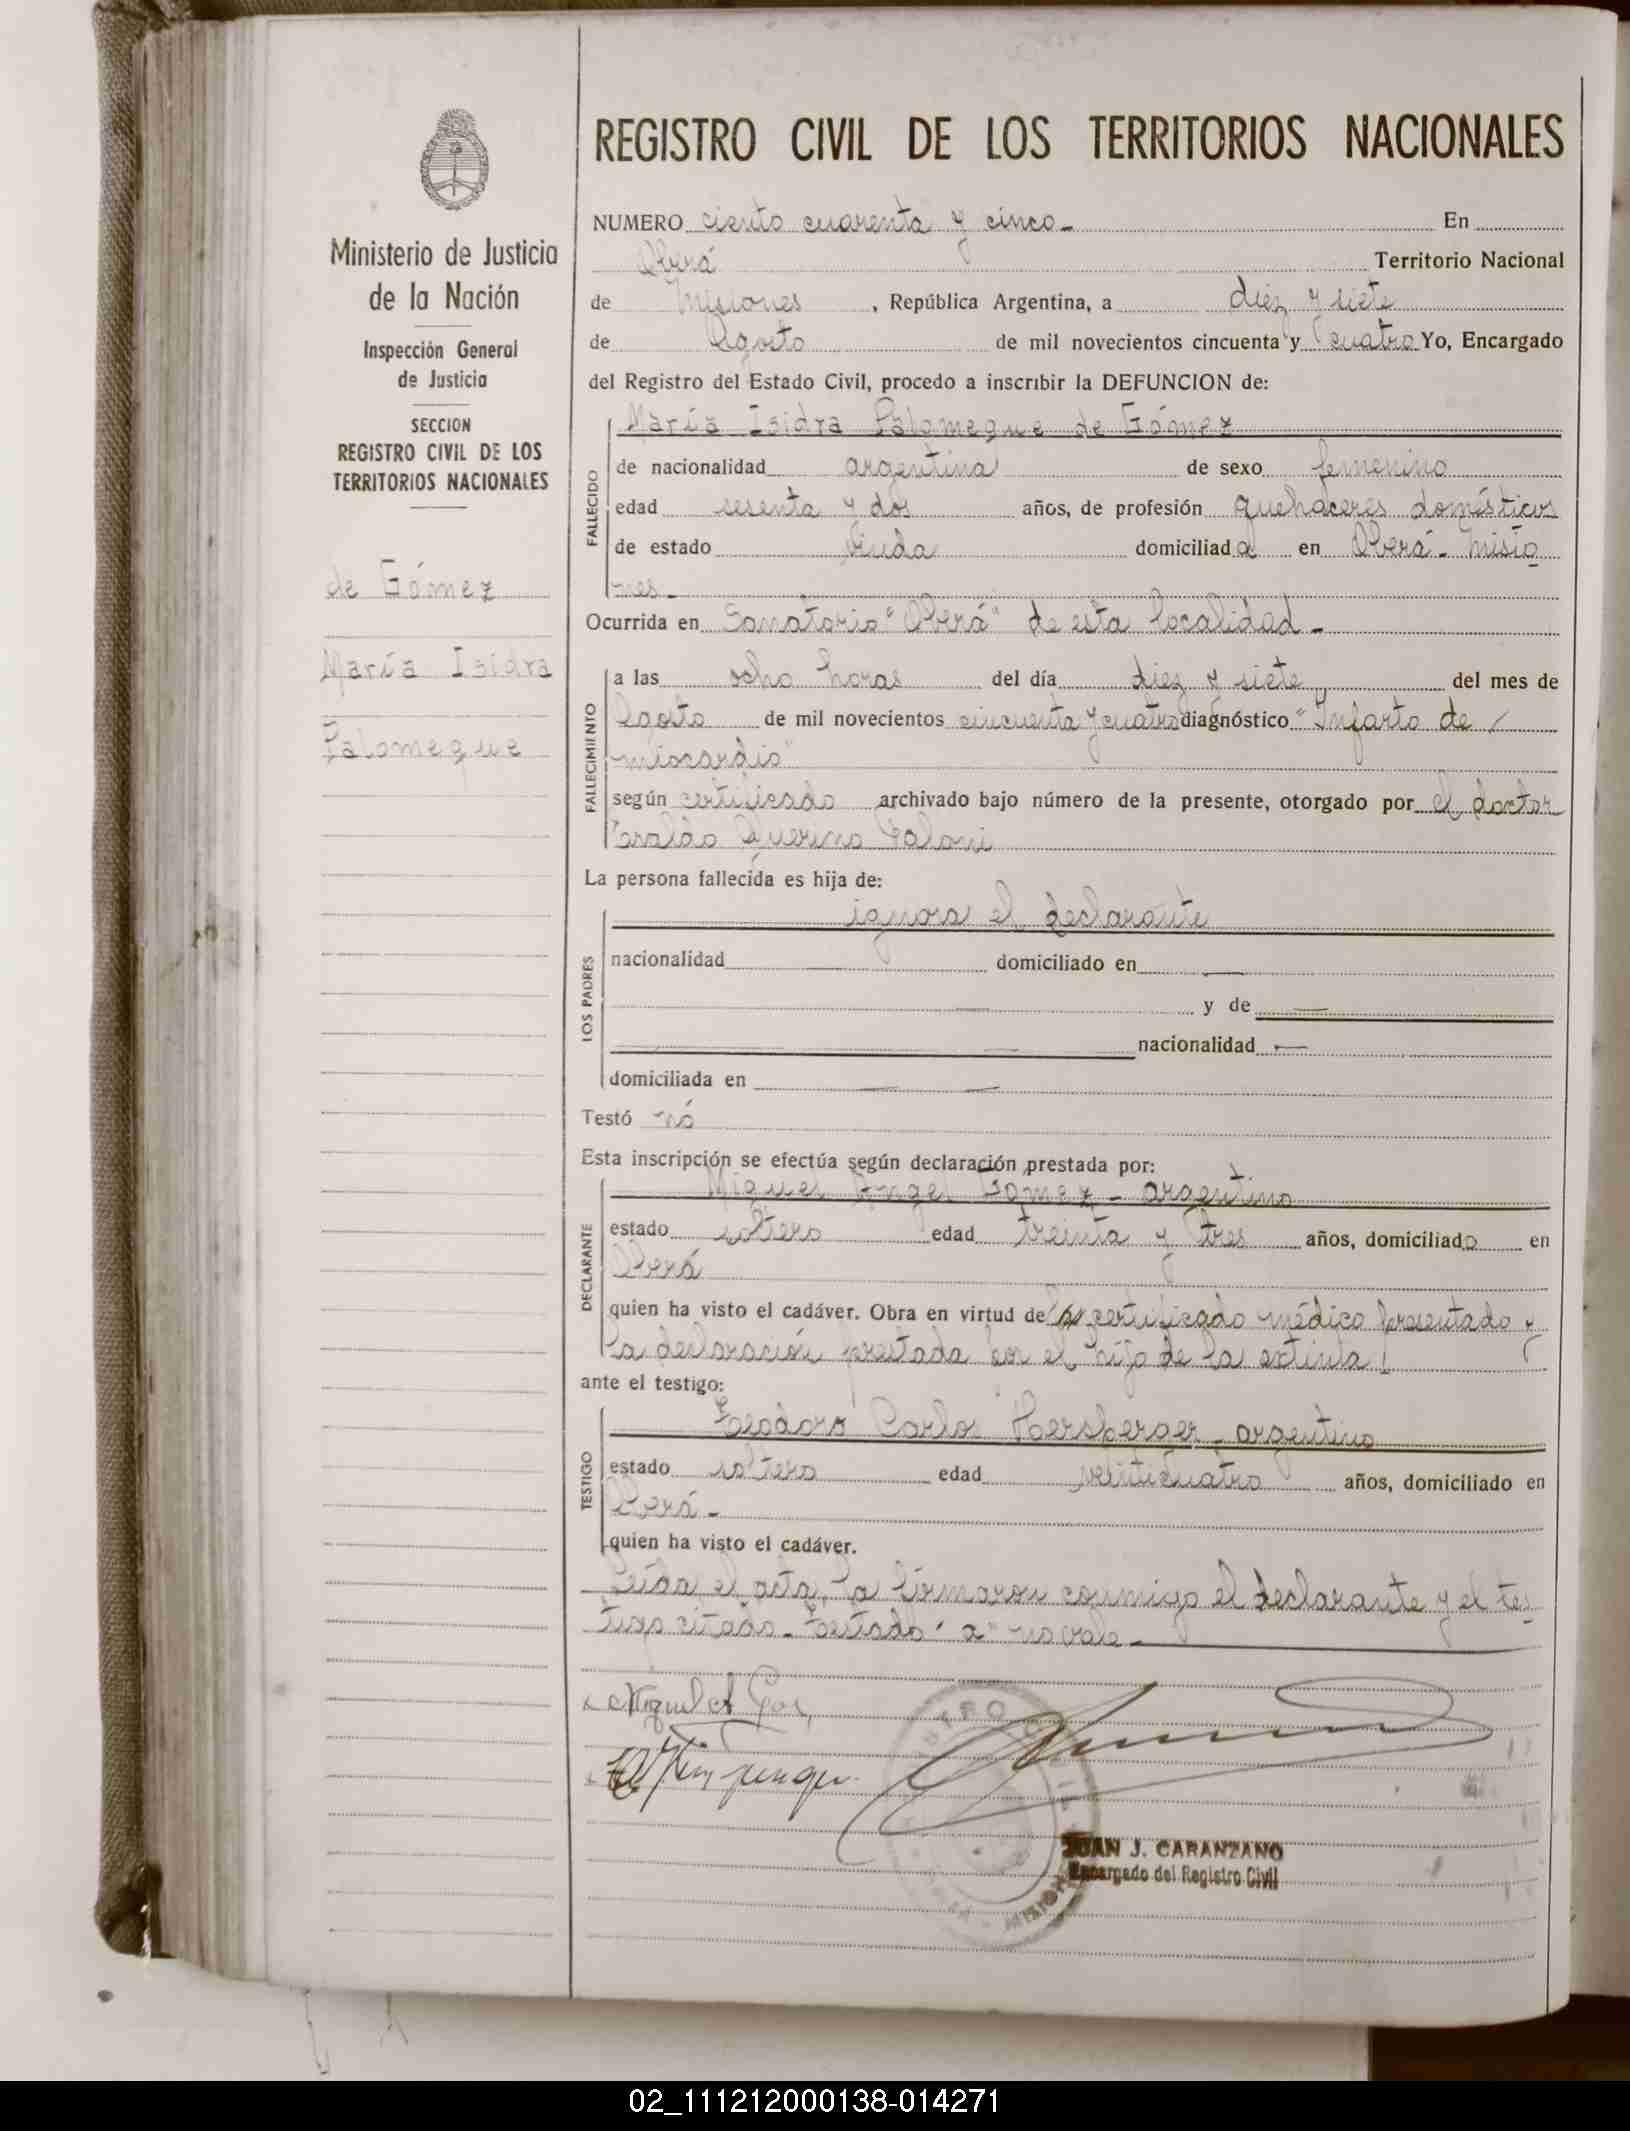 REGISTRO CIVIL DE LOS TERRITORIOS NACIONALES
Ministerio de Justicia
de la Nación
Inspección General
de Justicia
SECCION
REGISTRO CIVIL DE LOS
TERRITORIOS NACIONALES
de Gómez
María Isidra
Palomeque
NUMERO ciento cuarenta y cinco.- En
Oberá Territorio Nacional
de Misiones, República Argentina, a diez y siete
de Agosto de mil novecientos cincuenta y cuatro Yo, Encargado
del Registro del Estado Civil, procedo a inscribir la DEFUNCION de:
FALLECIDO
María Isidra Palomeque de Gómez
de nacionalidad argentina de sexo femenino
edad sesenta y dos años, de profesión quehaceres domésticos
de estado viuda domiciliada en Oberá - Misio
nes.-
Ocurrida en Sanatorio "Oberá" de esta localidad.-
FALLECIMIENTO
a las ocho horas del día diez y siete del mes de
Agosto de mil novecientos cincuenta y cuatro diagnóstico "Infarto de /
miocardio"
según certificado archivado bajo número de la presente, otorgado por el doctor
Querino
La persona fallecida es hija de:
LOS PADRES
ignora el declarante
nacionalidad — domiciliado en —
— y de —
— nacionalidad —
domiciliada en — —
Testó nó
Esta inscripción se efectúa según declaración prestada por:
DECLARANTE
Miguel Angel Gomez - argentino
estado soltero edad treinta y tres años, domiciliado en
Oberá
quien ha visto el cadáver. Obra en virtud de certificado médico presentado y
la declaración prestada por el hijo de la extinta
ante el testigo:
TESTIGO
Teodoro Carlos Hersberger - argentino
estado soltero edad veinticuatro años, domiciliado en
Oberá -
quien ha visto el cadáver.
Leída el acta, la firmaron conmigo el declarante y el tes-
tigo citado. Testado "a" no vale.-
Miguel A
JUAN J. CARANZANO
Encargado del Registro Civil
02_111212000138-014271